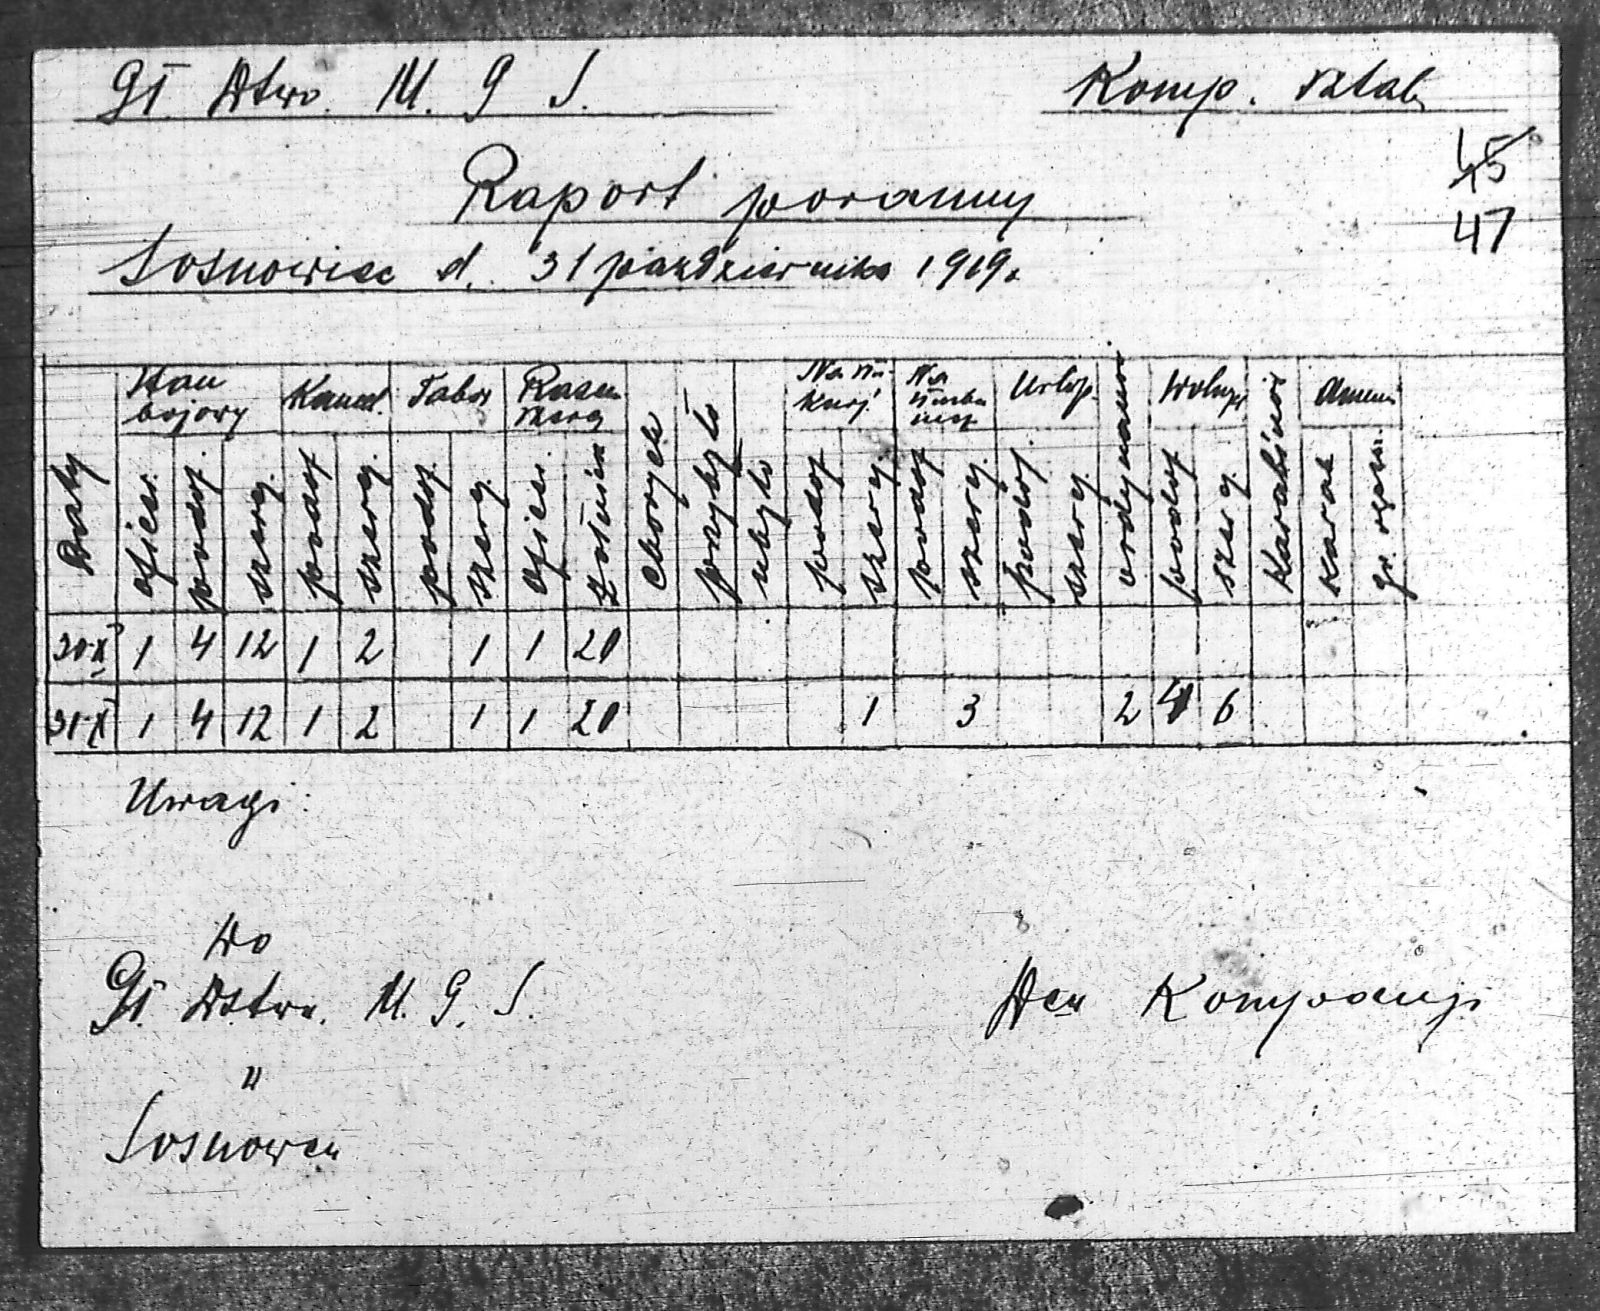 Gł. Dtwo. M. G. S.
Komp. sztab.
45
47
Raport poranny
Sosnowiec d. 31 października 1919r.
Daty
Stan bojowy
Kancel.
Tabor
Razem
Na
Na służbie
Urlop.
Wolnych
Amuni
oficer.
podof.
szereg.
podof.
szereg.
podof.
szereg.
oficer.
żołnierz
chorych
przybyło
ubyło
podof.
szereg.
podof.
szereg.
podof.
szereg.
ordynansów
podof.
szereg.
Karabinów
karab
gr. ręczn.
30.X 1 4 12 1 2 1 1 20
31.X 1 4 12 1 2 1 1 20 1 3 2 4 6
Uwagi:
Do
Gł. Dstwa. M. G. S.
"
Sosnowcu
Dca Kompanji